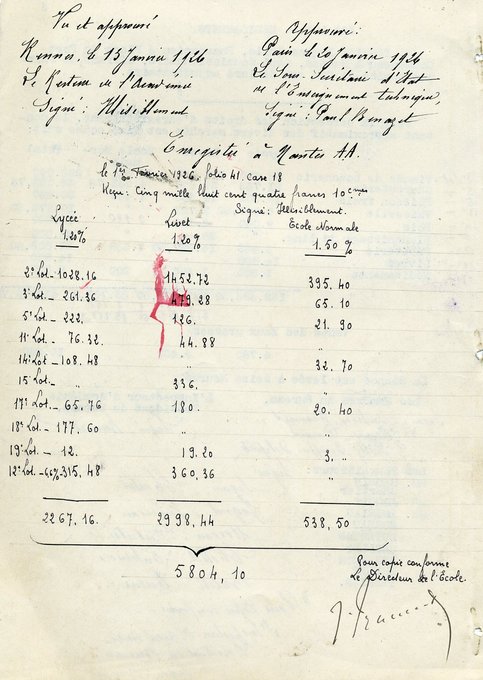 Vu et approuvé
Rennes, le 15 Janvier 1926
Le Recteur de l'Académie
Signé : Illisiblement
Approuvé:
Paris le 20 Janvier 1926
Le Sous. Secrétaire d'Etat
de l'Enseignement technique,
Signé, Paul Benazet
Enregistré à Nantes AA.
le 1er Février 1926, folio 41, case 18
Reçu : Cinq mille huit cent quatre francs 10 cmes
Signé: Illisiblement.
Lycée Livet Ecole Normale
1.20% 1.20% 1.50%
2e Lot - 1028.16 1452.72 395.40
3e Lot. - 261.36 479.28 65.10
5e Lot - 222. 126. 21.90
11e Lot - 76.32 44.88 "
14e Lot - 108.48 " 32.70
15e Lot - " 336. "
17e Lot. - 65.76 180. 20.40
18e Lot - 177.60 " "
19e Lot - 12. 19.20 3. "
12e Lot. - 66% 315.48 360.36 "
2267.16. 2998,44 538,50
5804,10
Pour copie conforme
Le Directeur de l'Ecole.